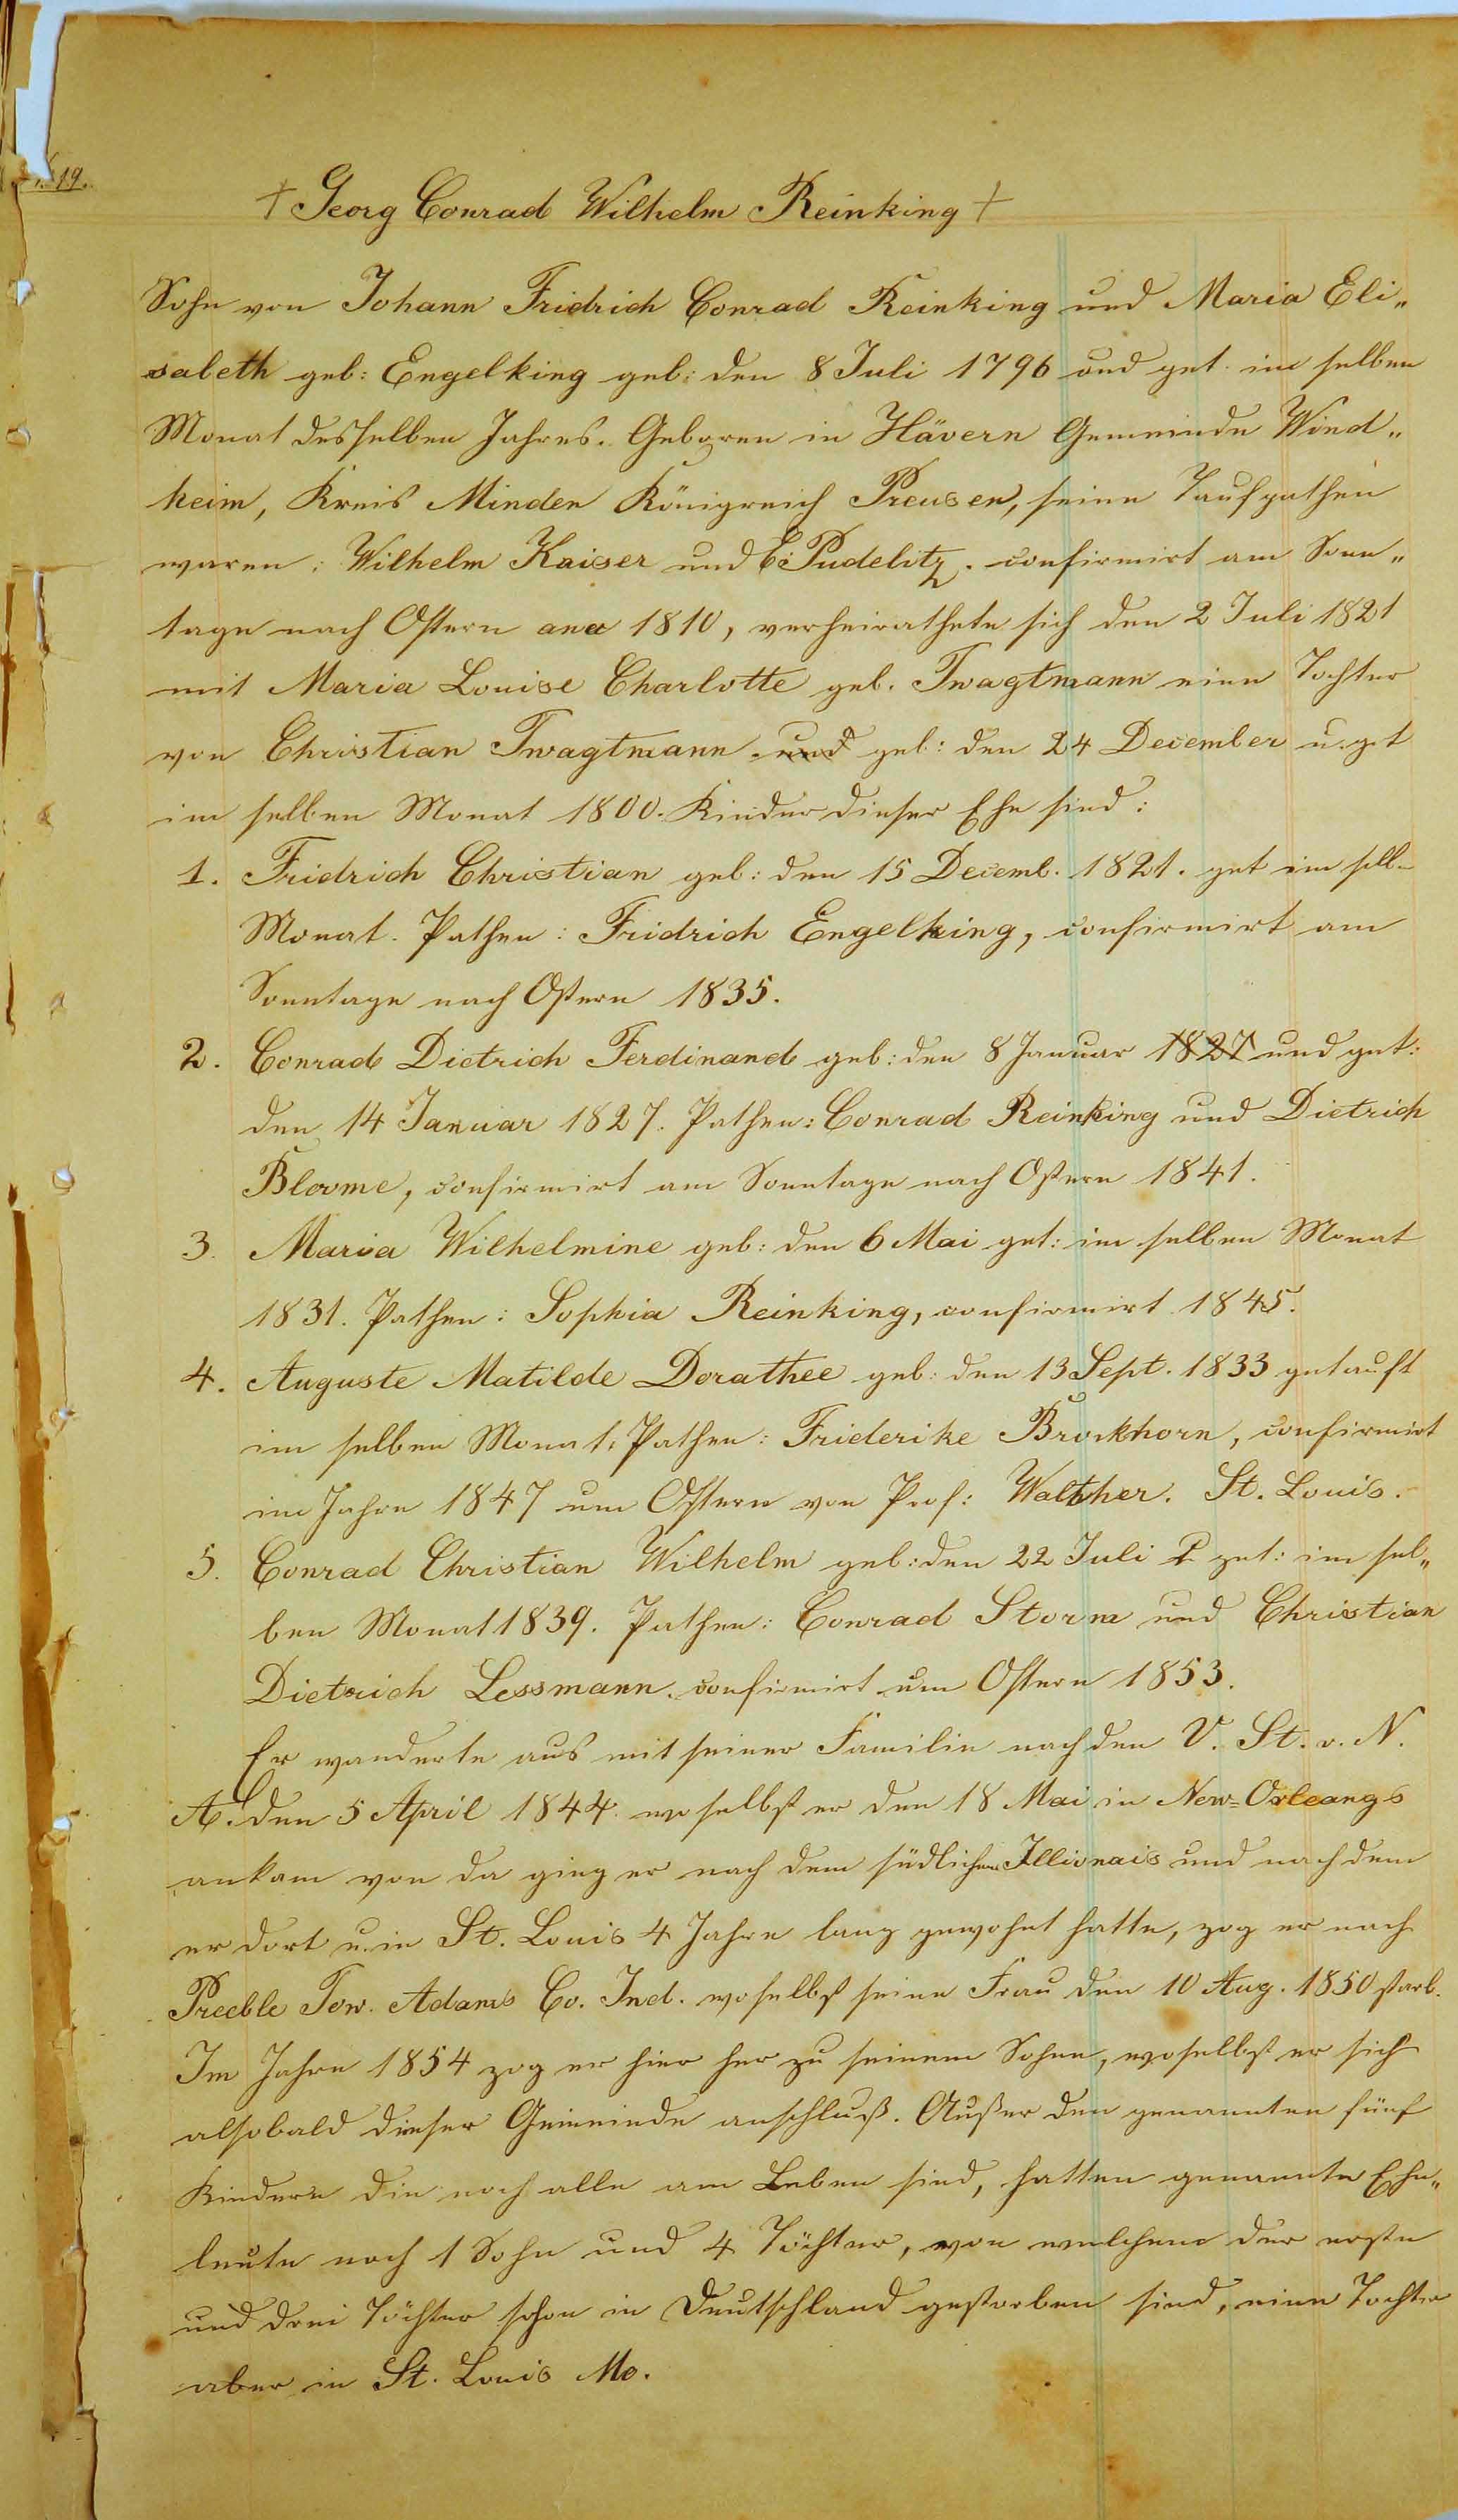 19.
† Georg Conrad Wilhelm Reinking †
Sohn von Johann Fridrich Conrad Reinking und Maria Eli„
sabeth geb: Engelking geb: den 8 Juli 1796 und get. im selben
Monat desselben Jahres. Geboren in Hävern Gemeinde Wind„
heim, Kreis Minden Königreich Preusen, seine Taufpathen
waren: Wilhelm Kaiser und E. Pudelitz. confirmirt am Sonn„
tage nach Ostern 1810, verheirathete sich den 2 Juli 1821
mit Maria Louise Charlotte geb. Twagtmann eine Tochter
von Christian Twagtmann. und geb: den 24 December u. get
im selben Monat 1800. Kinder dieser Ehe sind:
1. Fridrich Christian geb: den 15 Decemb. 1821. get im selb-
Monat. Pathen: Fridrich Engelking, confirmirt am
Sonntage nach Ostern 1835.
2. Conrad Dietrich Ferdinand geb: den 8 Januar 1827 und get:
den 14 Januar 1827. Pathen: Conrad Reinking und Dietrich
Bloome, confirmirt am Sonntage nach Ostern 1841.
3. Maria Wilhelmine geb: den 6 Mai get: im selben Monat
1831. Pathen: Sophia Reinking, confirmirt 1845.
4. Auguste Matilde Dorathee geb: den 13 Sept. 1833 getauft
im selben Monat. Pathen: Friderike Brockhorn, confirmirt
im Jahre 1847 um Ostern von Prof: Walther. St. Louis.
5. Conrad Christian Wilhelm geb: den 22 Juli get: im sel„
ben Monat 1839. Pathen: Conrad Storm und Christian
Dietrich Lessmann. confirmirt um Ostern 1853.
Er wanderte aus mit seiner Familie nach den V. St. v. N.
A. den 5 April 1844. woselbst er den 18 Mai in New=Orleangs
ankam von da ging er nach dem südlichen Illionais und nach dem
er dort u. in St. Louis 4 Jahre lang gewohnt hatte, zog er nach
Preeble Tow. Adams Co. Ind. woselbst seine Frau den 10 Aug. 1850 starb.
Im Jahre 1854 zog er hier her zu seinem Sohne, woselbst er sich
alsobald dieser Gemeinde anschluß. Außer den genannten fünf
Kindern die noch alle am Leben sind, hatten genannte Ehe„
leute noch 1 Sohn und 4 Töchter, von welchen der erste
und drei Töchter schon in Deutschland gestorben sind, eine Tochter
aber in St. Louis Mo.